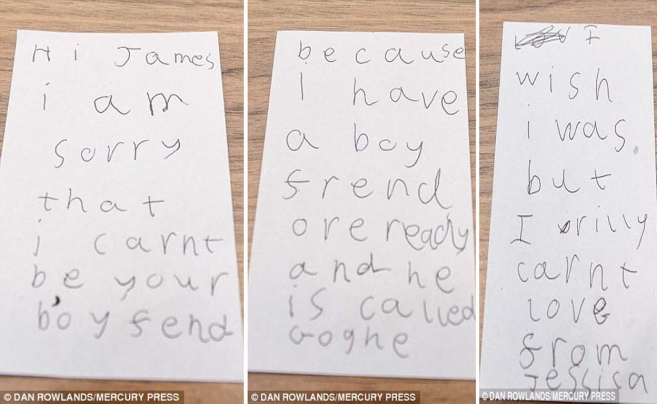 Hi James
i am
sorry
that
i carnt
be your
boy fend
because
I have
a boy
frend
ore ready
and he
is called
Goghe
I
wish
i was.
but
I rilly
carnt
love
from
Jessica
© DAN ROWLANDS/MERCURY PRESS
© DAN ROWLANDS/MERCURY PRESS
© DAN ROWLANDS/MERCURY PRESS